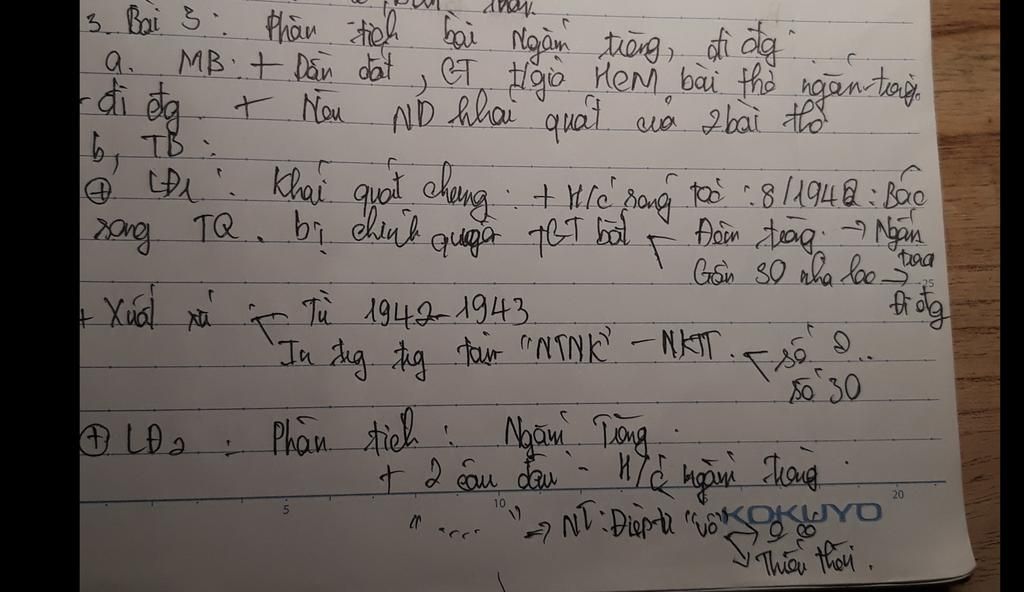 3. Bài 3: Phân tích bài Ngắm trăng, đi đg
a. MB: + Dẫn dắt, GT t/giả HCM bài thơ ngắm trăng.
- đi đg + Nêu ND khái quát của 2 bài thơ
b, TB:
⊕ LĐ1: Khái quát chung: + H/c sáng tác: 8/1942: Bác
sang TQ. bị chính quyền TGT bắt Đêm trăng → Ngắm
trăng
Gần 30 nhà lao → Đi đg
+ Xuất xứ: Từ 1942-1943
In tg tg tập "NTNK" - NKTT. số 2..
số 30
⊕ LĐ2: Phân tích: Ngắm Trăng.
+ 2 câu đầu - H/c ngắm trăng.
5 10 20
"...." => NT: Điệp từ "vô"
KOKUYO
Thiếu thốn.